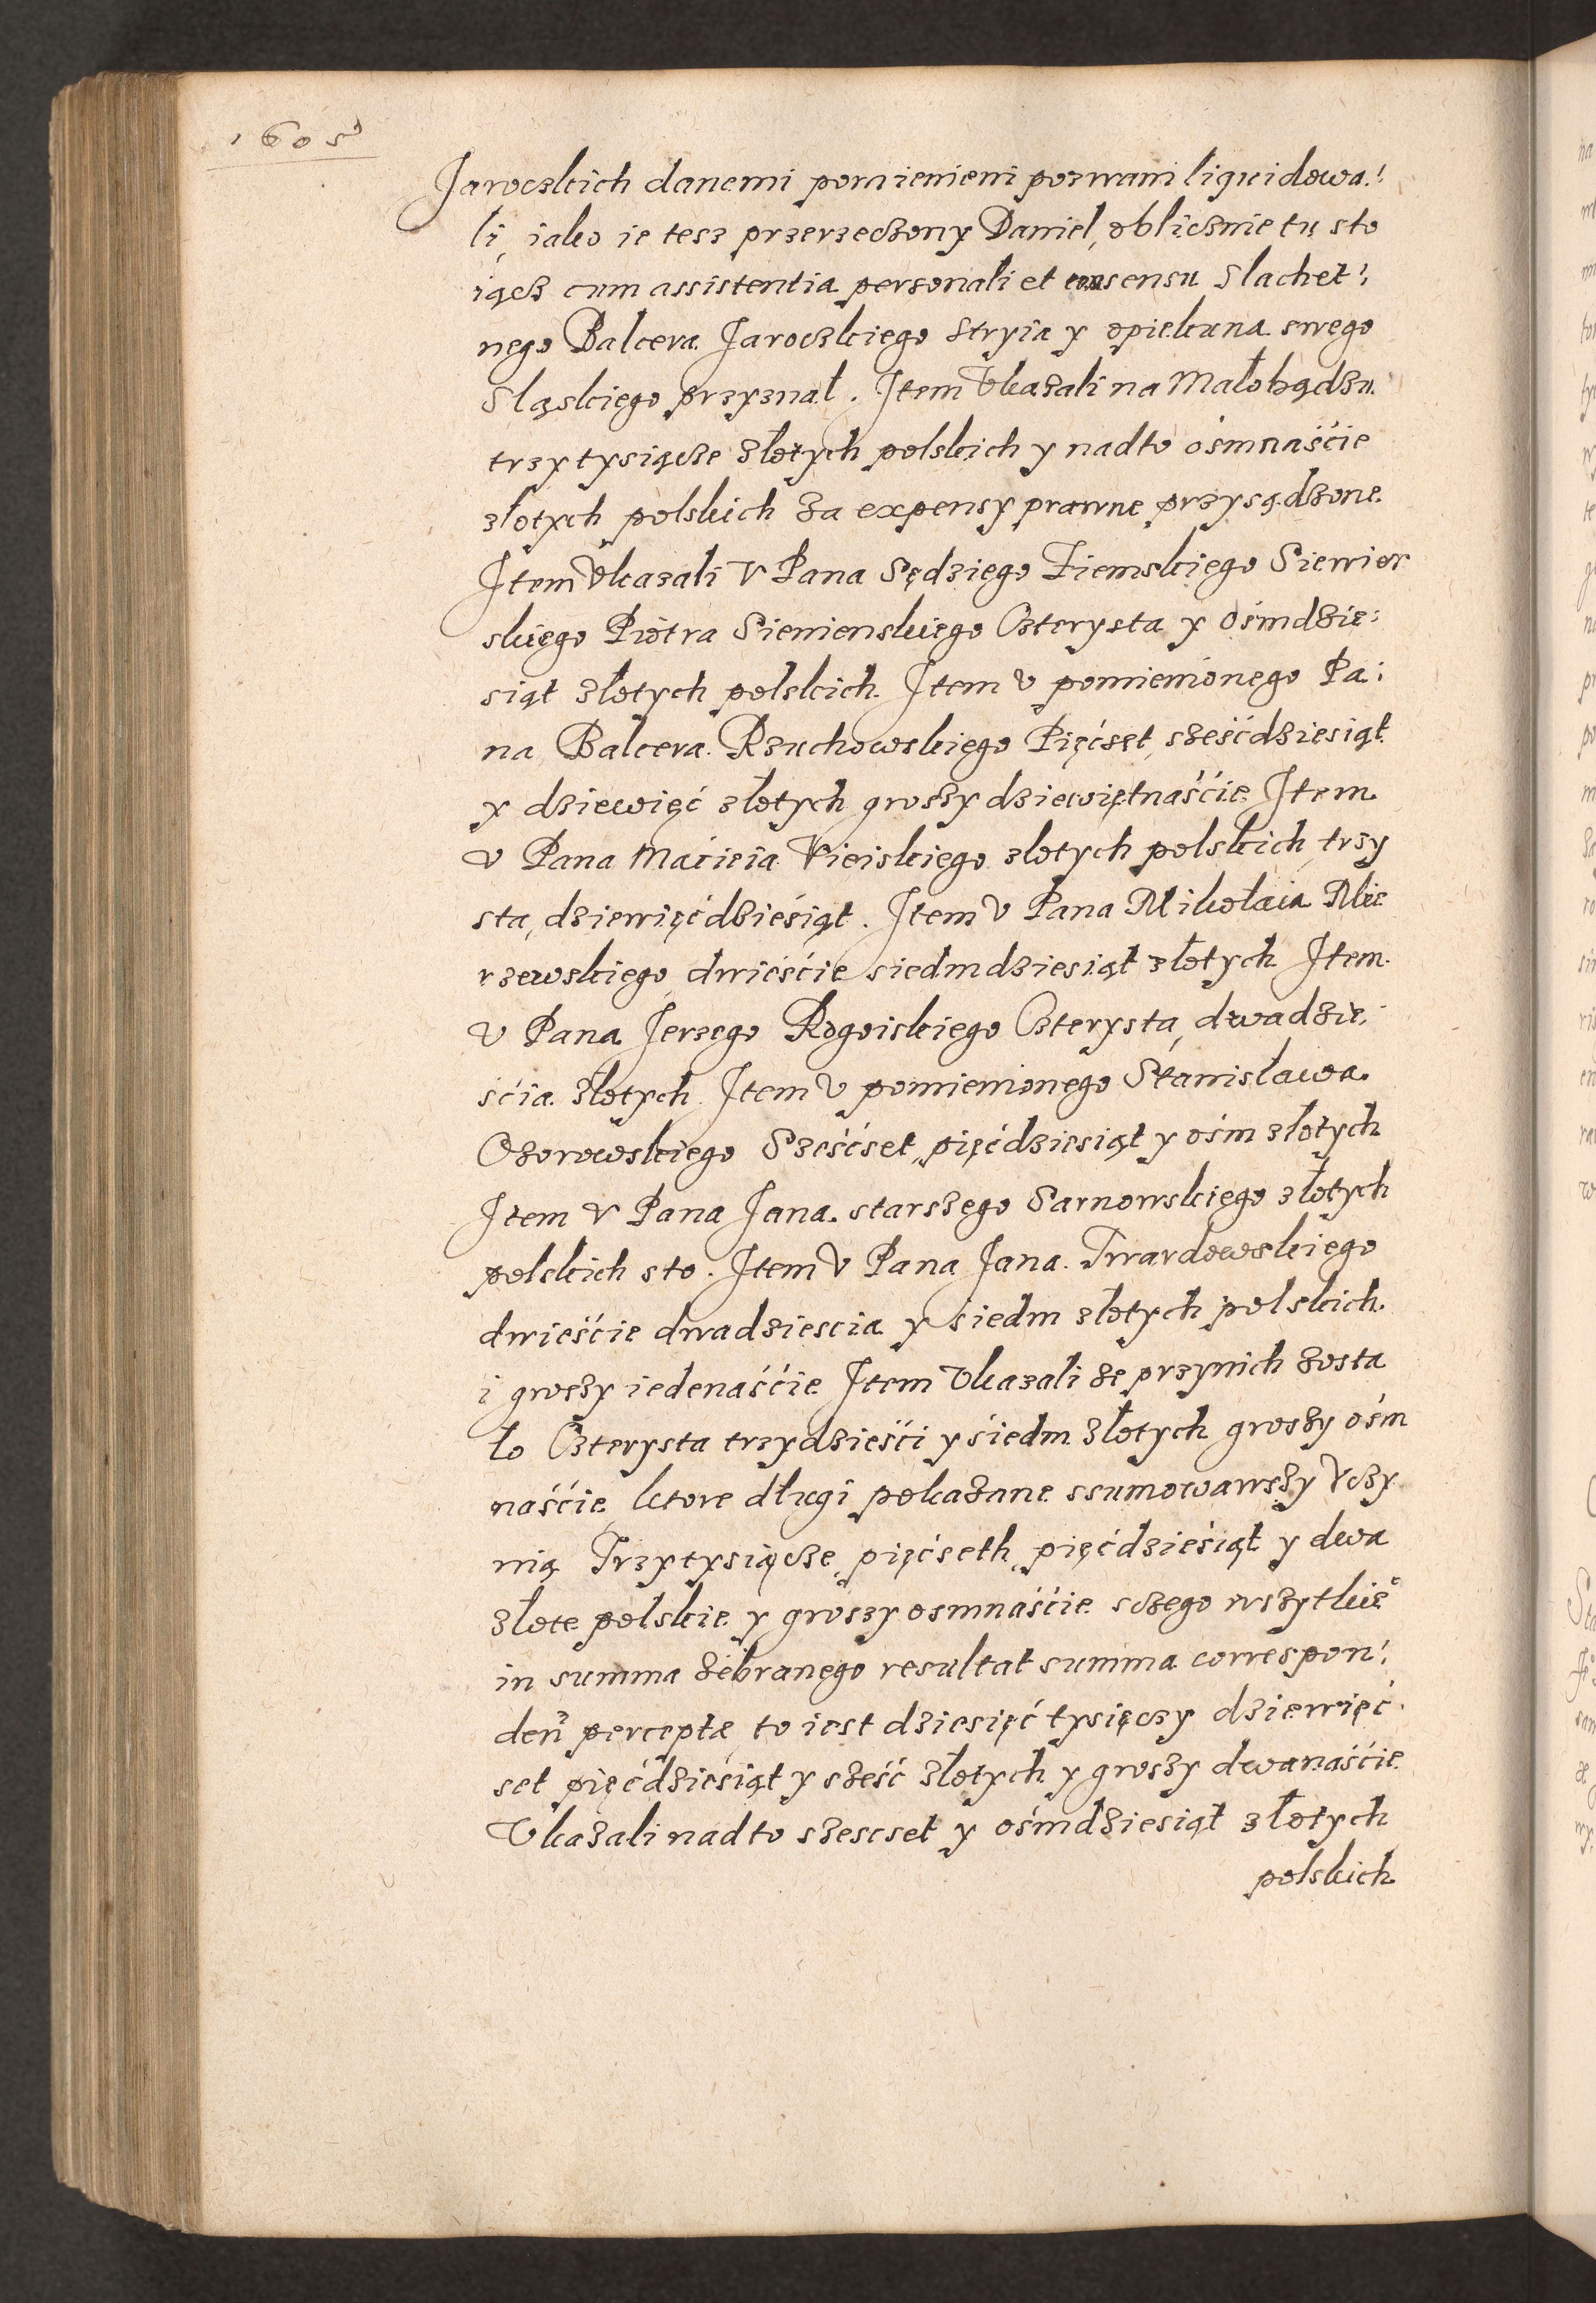 1605
Jaroczkich danemi pomienieni pozwani liquidowa:
li, iako ie tesz przerzeczony Daniel, oblicznie tu sto
iącz cum assistentia personali et consensu Slachet:
nego Balcera Jaroczkiego Stryia y opiekuna swego
Sląskiego przyznał. Jtem Vkazali na Małobądzu
trzy tysiącze złotych polskich y nadto ośmnaście
złotych polskich za expensy prawne przysądzone.
Jtem Vkazali V Pana Sędziego Ziemskiego Siewior
skiego Piotra Siemienskiego Czterysta y ośmdzie:
siąt złotych polskich. Jtem v pomienionego Pa:
na Balcera Rzuchowskiego Pięćset, sześćdziesiąt
y dziewięć złotych groszy dziewiętnaście Jtem
v Pana Macieia Kieiskiego złotych polskich trzy
sta, dziewięćdzieśiąt. Jtem V Pana Mikołaia Mie
rzewskiego dwieście siedmdziesiąt złotych Jtem
v Pana Jerzego Rogoiskiego Czterysta, dwadzie:
ścia złotych. Jtem v pomienionego Stanisława
Ożorowskiego Sześćset, pięćdziesiąt y ośm złotych
Jtem V Pana Jana starszego Sarnowskiego złotych
polskich sto. Jtem V Pana Jana Twardowskiego
dwieście dwadziescia y siedm złotych polskich
i groszy iedenaśćie Jtem Vkazali że przynich zosta
ło Czterysta trzydzieśći y śiedm złotych groszy ośm
naście, ktore długi pokazane ssumowawszy Vczy
nią Trzy tysiącze, pięćseth, pięćdzieśiąt y dwa
złote polskie y groszy osmnaście sczego wszytkie°
in summa żebranego resultat summa correspon:
den̄ perceptæ to iest dziesięć tysięczy dziewięć
set pięćdzieśiąt y sześć złotych y groszy dwanaście
Vkazali nadto szescset y ośmdziesiąt złotych
polskich